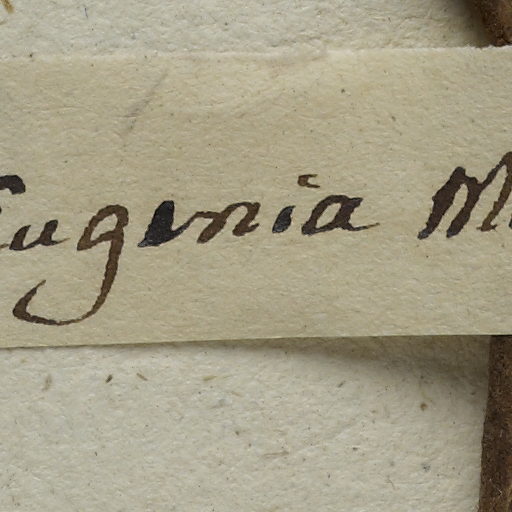 Eugenia M